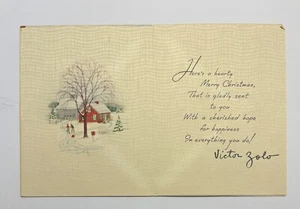 Here's a hearty
Merry Christmas,
That is gladly sent
to you
With a cherished hope
for happiness
In everything you do!
Victor Zolo